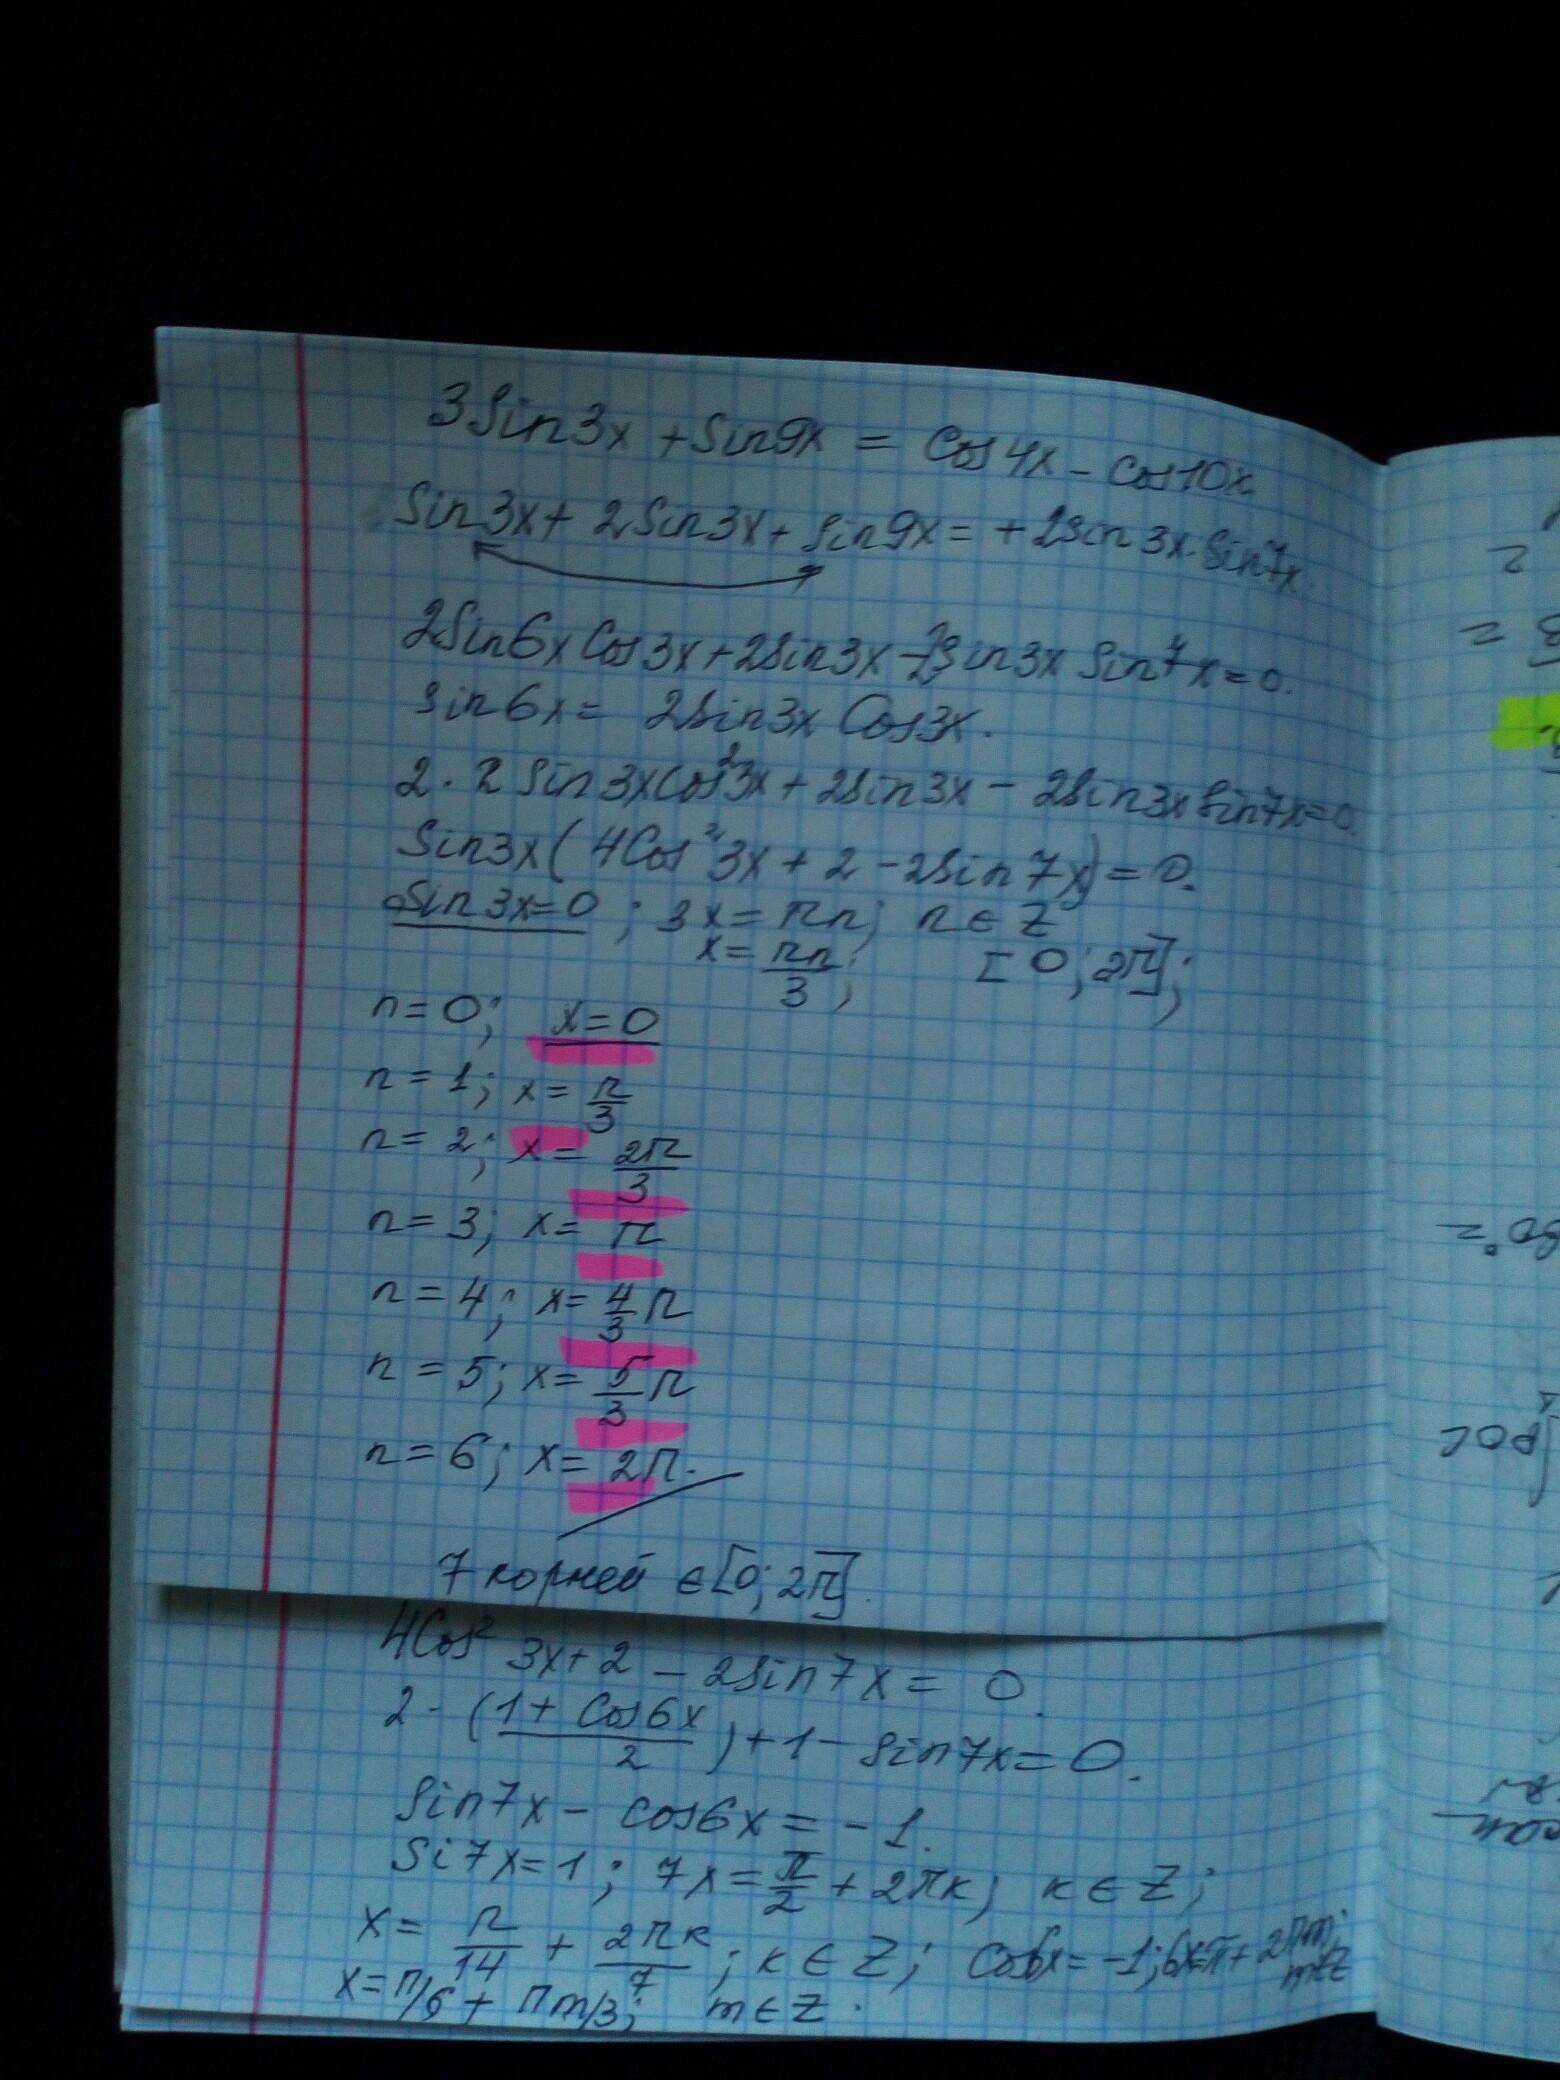 3Sin3x + Sin9x = Cos4x - Cos10x
Sin3x + 2Sin3x + Sin9x = +2Sin3x·Sin7x.
2Sin6x Cos3x + 2Sin3x - 2Sin3x Sin7x = 0.
Sin6x = 2Sin3x Cos3x.
2·2Sin3xCos²3x + 2Sin3x - 2Sin3xSin7x=0.
Sin3x(4Cos²3x + 2 - 2Sin7x) = 0.
Sin3x=0; 3x = πn; n ∈ Z
x = πn/3; [0; 2π];
n = 0; x = 0
n = 1; x = π/3
n = 2; x = 2π/3
n = 3; x = π
n = 4; x = 4/3 π
n = 5; x = 5/3 π
n = 6; x = 2π.
7 корней ∈ [0; 2π].
4Cos² 3x + 2 - 2Sin7x = 0.
2·(1 + Cos6x/2) + 1 - Sin7x = 0.
Sin7x - Cos6x = -1.
Si7x = 1; 7x = π/2 + 2πk; k ∈ Z;
x = π/14 + 2πk/7; k ∈ Z; Cos6x = -1; 6x=π + 2πm; m∈Z
x = π/6 + πm/3; m ∈ Z.